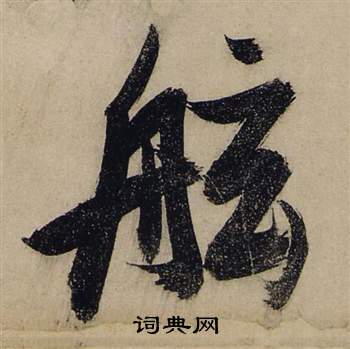 舷
词典网